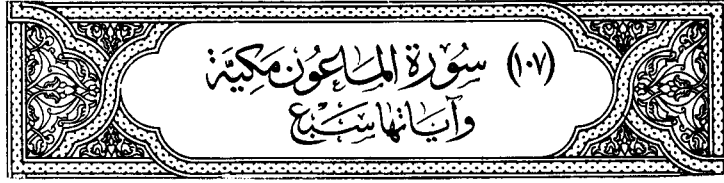 (١٠٧) سُورَة المَاعُون مَكِيَّة
وَآيَاتُهَا سَبْع